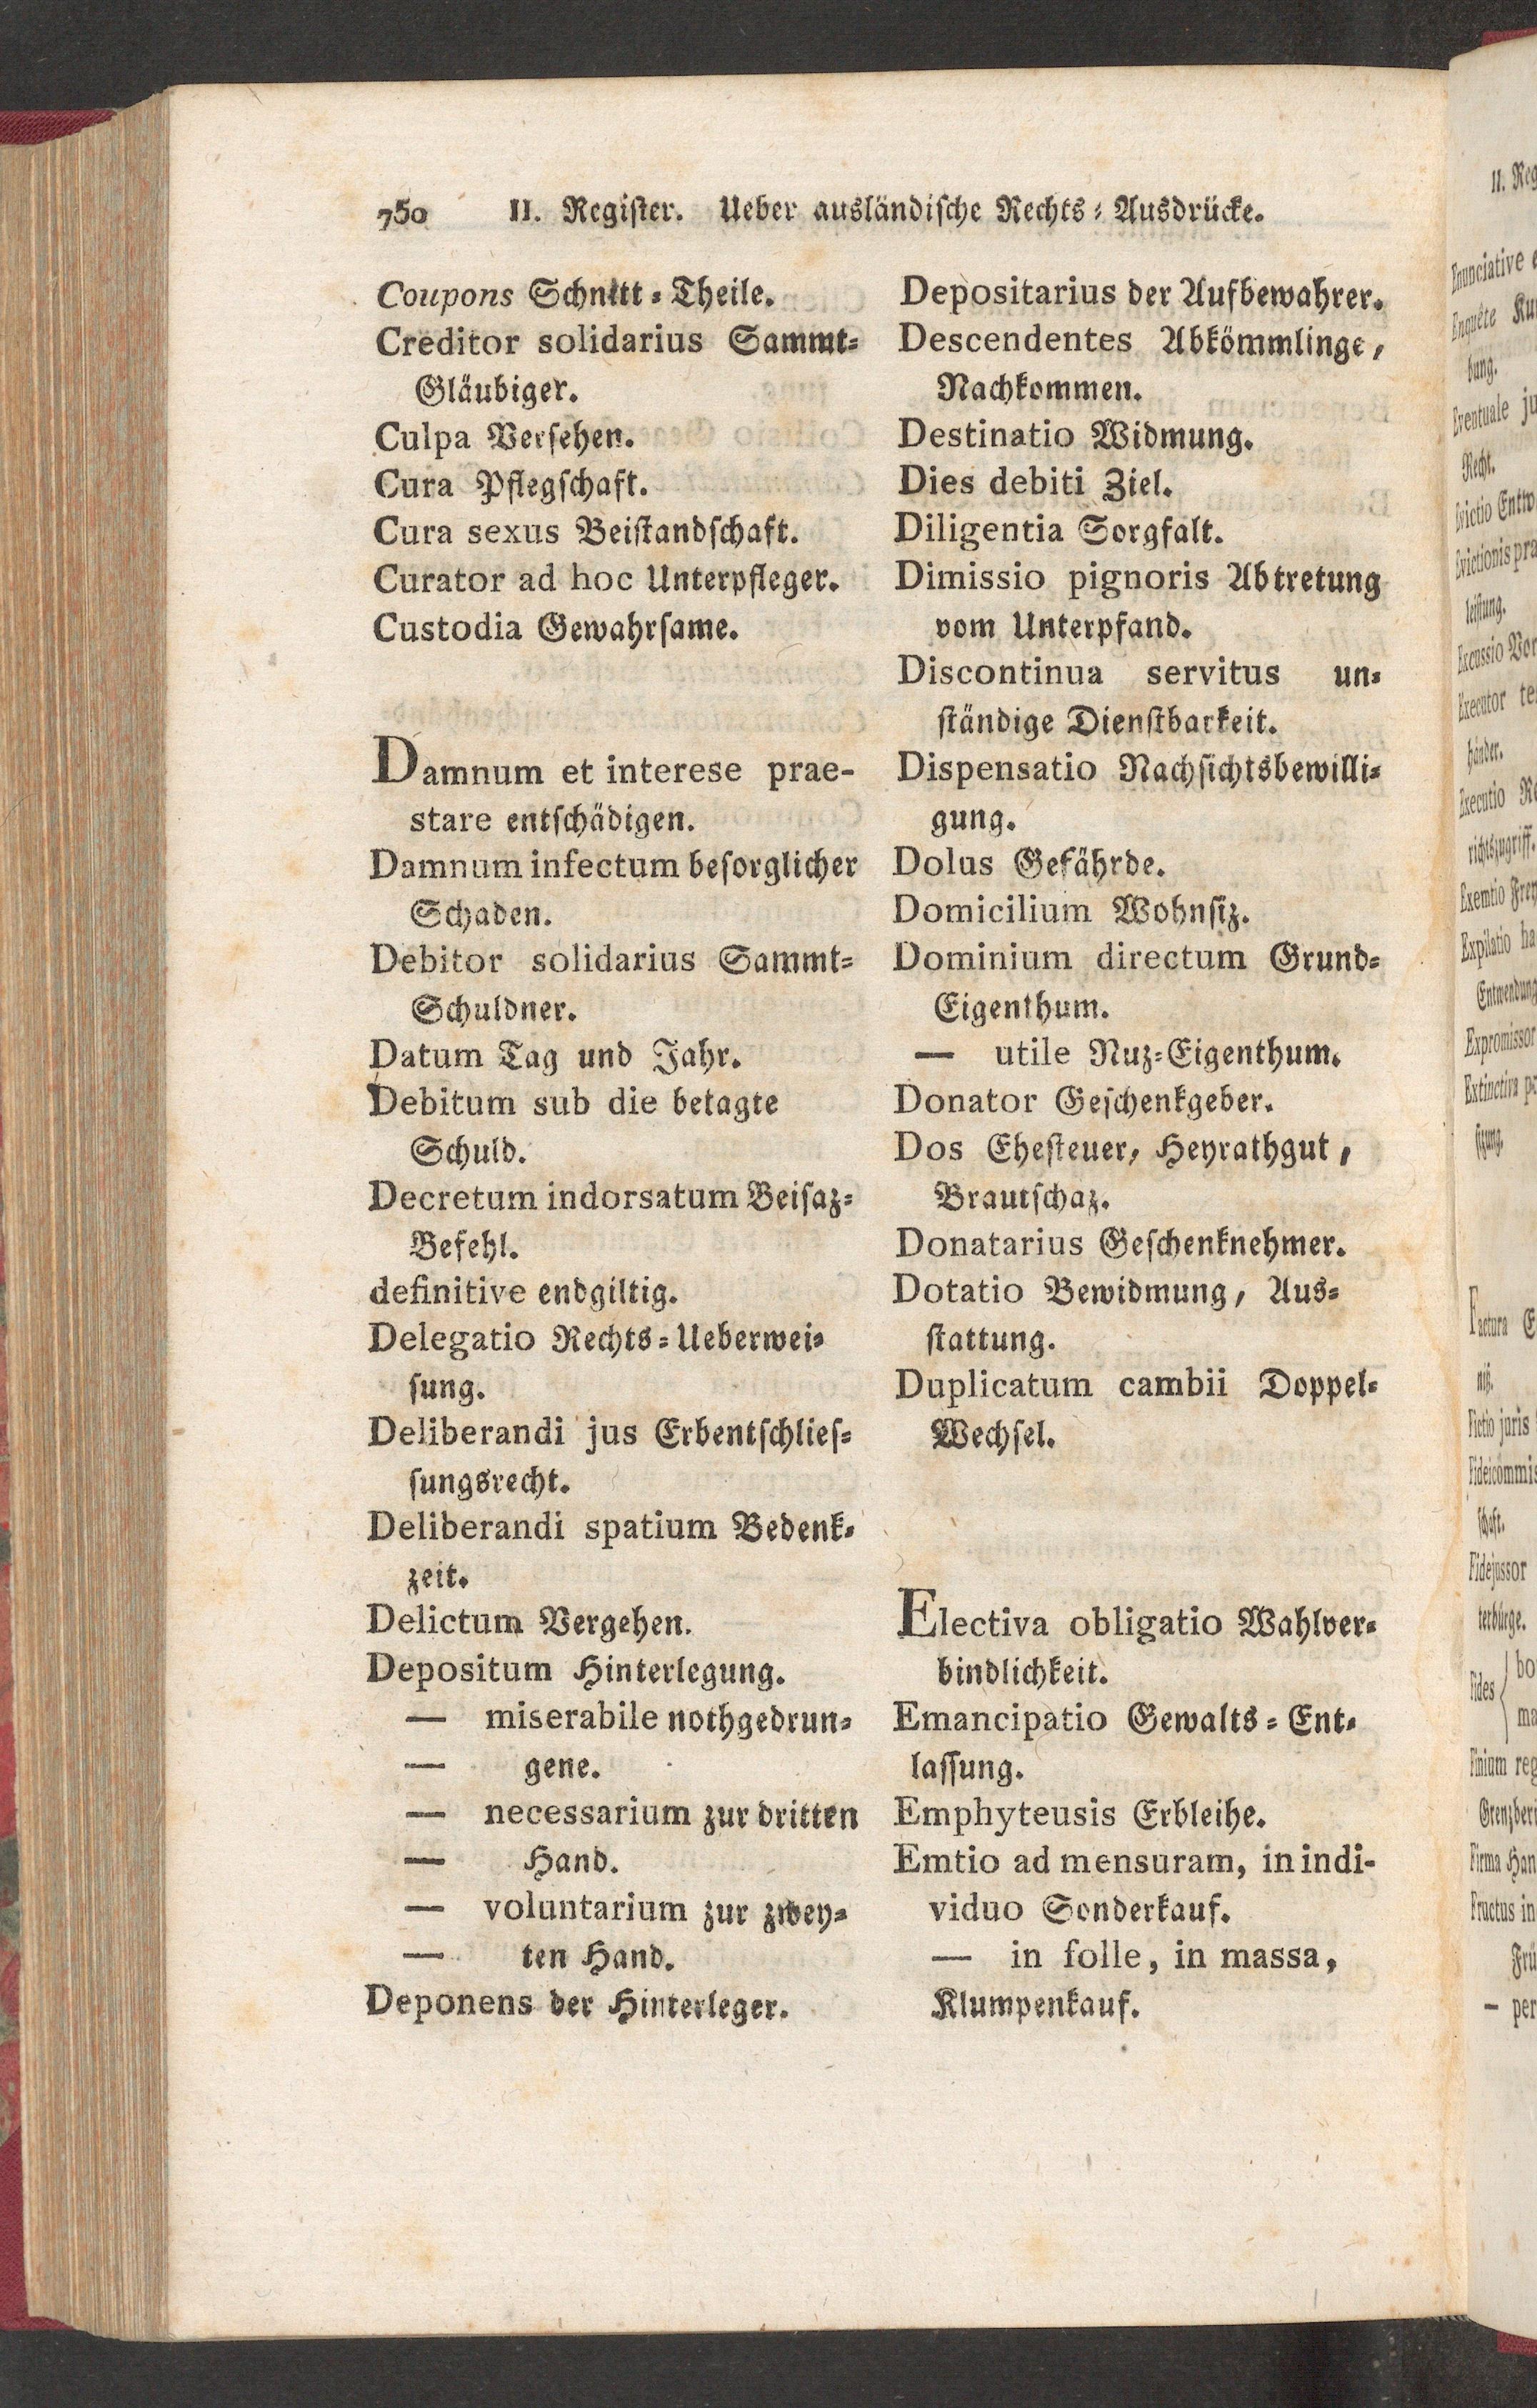 750 II. Register. Ueber ausländische Rechts-Ausdrücke.
Coupons Schnitt-Theile.
Creditor solidarius Sammt-
Gläubiger.
Culpa Versehen.
Cura Pflegschaft.
Cura sexus Beistandschaft.
Curator ad hoc Unterpfleger.
Custodia Gewahrsame.
Damnum et interese prae-
stare entschädigen.
Damnum infectum besorglicher
Schaden.
Debitor solidarius Sammt-
Schuldner.
Datum Tag und Jahr.
Debitum sub die betagte
Schuld.
Decretum indorsatum Beisaz-
Befehl.
definitive endgiltig.
Delegatio Rechts-Ueberwei-
sung.
Deliberandi jus Erbentschlies-
sungsrecht.
Deliberandi spatium Bedenk-
zeit.
Delictum Vergehen.
Depositum Hinterlegung.
— miserabile nothgedrun-
— gene.
— necessarium zur dritten
— Hand.
— voluntarium zur zwey-
— ten Hand.
Deponens der Hinterleger.
Depositarius der Aufbewahrer.
Descendentes Abkömmlinge,
Nachkommen.
Destinatio Widmung.
Dies debiti Ziel.
Diligentia Sorgfalt.
Dimissio pignoris Abtretung
vom Unterpfand.
Discontinua servitus un-
ständige Dienstbarkeit.
Dispensatio Nachsichtsbewilli-
gung.
Dolus Gefährde.
Domicilium Wohnsiz.
Dominium directum Grund-
Eigenthum.
— utile Nuz-Eigenthum.
Donator Geschenkgeber.
Dos Ehesteuer, Heyrathgut,
Brautschaz.
Donatarius Geschenknehmer.
Dotatio Bewidmung, Aus-
stattung.
Duplicatum cambii Doppel-
Wechsel.
Electiva obligatio Wahlver-
bindlichkeit.
Emancipatio Gewalts-Ent-
lassung.
Emphyteusis Erbleihe.
Emtio ad mensuram, in indi-
viduo Sonderkauf.
— in folle, in massa,
Klumpenkauf.
II.
Enunciative
Enquête
bung.
Eventuale
Recht.
Evictio
Evictionis
leistung.
Excussio
Executor
händer.
Executio
richtszugriff.
Exemtio
Expilatio
Entwendung
Expromissor
Extinctiva
Factura
niß.
Fictio juris
schaft.
Fidejussor
terbürge.
Fides
Finium
Firma
Fructus in
— per